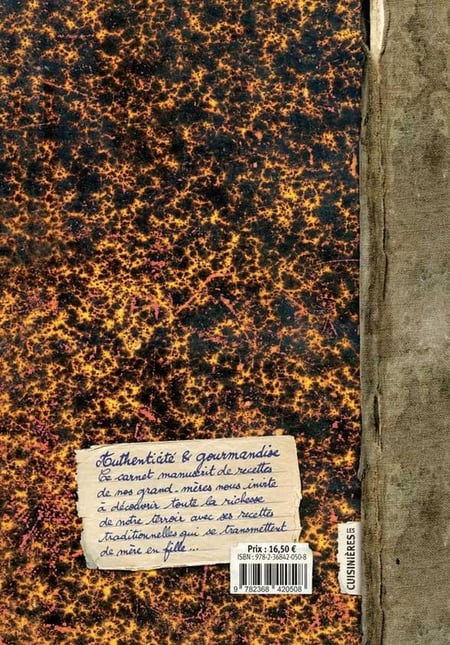 Authenticité & gourmandise
Ce carnet manuscrit de recettes
de nos grand-mères nous invite
à découvrir toute la richesse
de notre terroir avec ses recettes
traditionnelles qui se transmettent
de mère en fille...
Prix : 16,50 €
ISBN : 978-2-36842-050-8
9 782368 420508
LES CUISINIÈRES